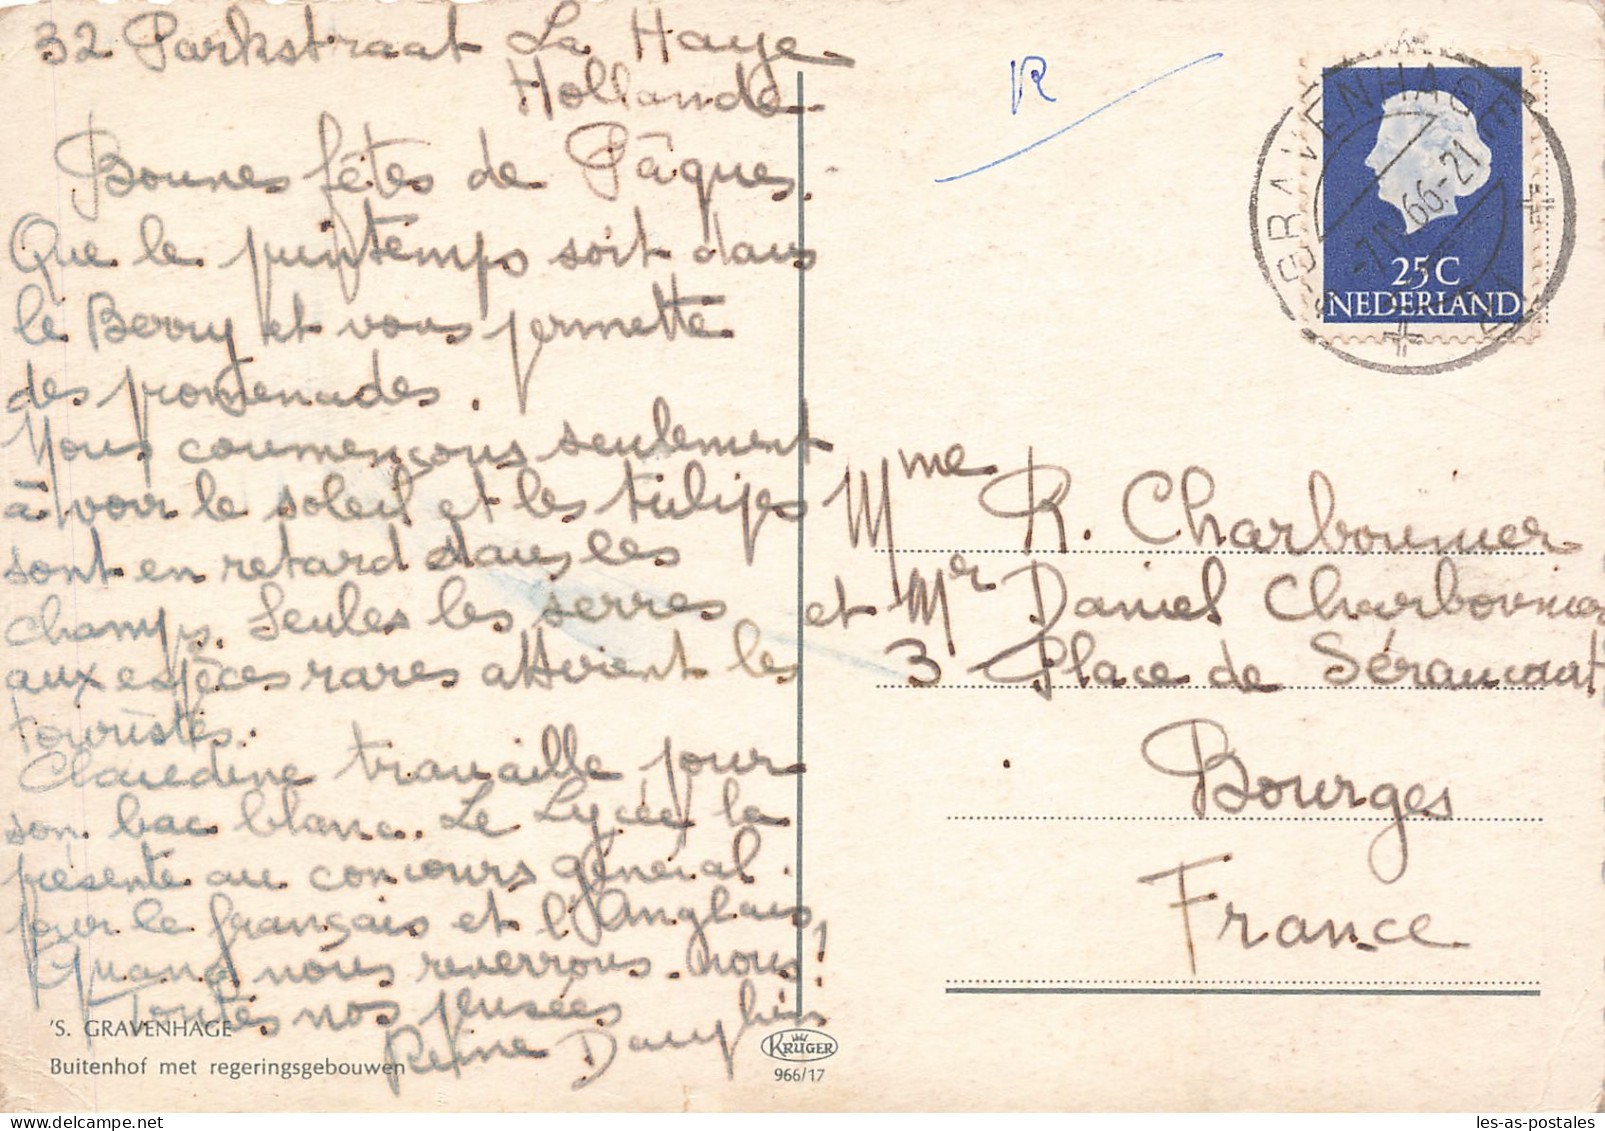 32 Parkstraat La Haye
Hollande.
Bonnes fêtes de Pâques.
Que le printemps soit dans
le Berry et vous permette
des promenades.
Nous commençons seulement
à voir le soleil et les tulipes
sont en retard dans les
champs. Seules les serres
aux espèces rares attirent les
touristes.
Claudine travaille pour
son bac blanc. Le Lycée la
présente au concours général
pour le français et l'Anglais,
Quand nous reverrons-nous!
Toutes nos pensées
Reine Dauphin
'S. GRAVENHAGE
Buitenhof met regeringsgebouwen
KRUGER
966/17
R
'S GRAVENHAGE
66.-21
25C
NEDERLAND
Mme R. Charbonnier
et Mr Daniel Charbonnier
3 Place de Séraucourt
Bourges
France
les-as-postales